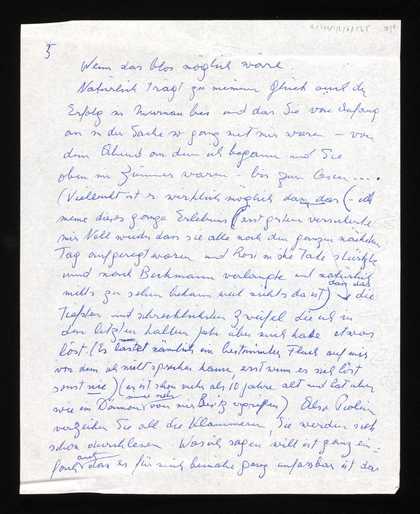 5
Wenn das blos möglich wäre.
Natürlich trägt zu meinem Glück auch der
Erfolg in Murnau bei und das Sie von Anfang
an in der Sache so ganz mit mir waren – von
dem Abend an dem ich begann und Sie
oben im Zimmer waren – bis zum Lesen ....
(Vielleicht ist es wirklich möglich dass das (– ich
meine dieses ganze Erlebnis (erst gestern versicherte
mir wieder dass sie alle noch den ganzen nächsten
Tag aufgeregt waren und in die Tate stürzte
und nach Beckmann verlangte und natürlich
nichts zu sehen bekam weil nichts da ist) dass das die
Tiefsten und schrecklichsten Zweifel die ich in
den letzten halben Jahr über mich habe etwas
löst. (Es lastet nämlich ein bestimmter Fluch auf mir
von dem ich nicht sprechen kann, erst wenn er sich löst
sonst nie) (er ist schon mehr als 10 Jahre alt und hat aber
wie ein Dämon von mir Besitz ergriffen) Also
verzeihen Sie all die Klammern, Sie werden sich
schon durchlesen. Was ich sagen will ist ganz ein-
fach auch dass es für mich beinahe ganz unfassbar ist das